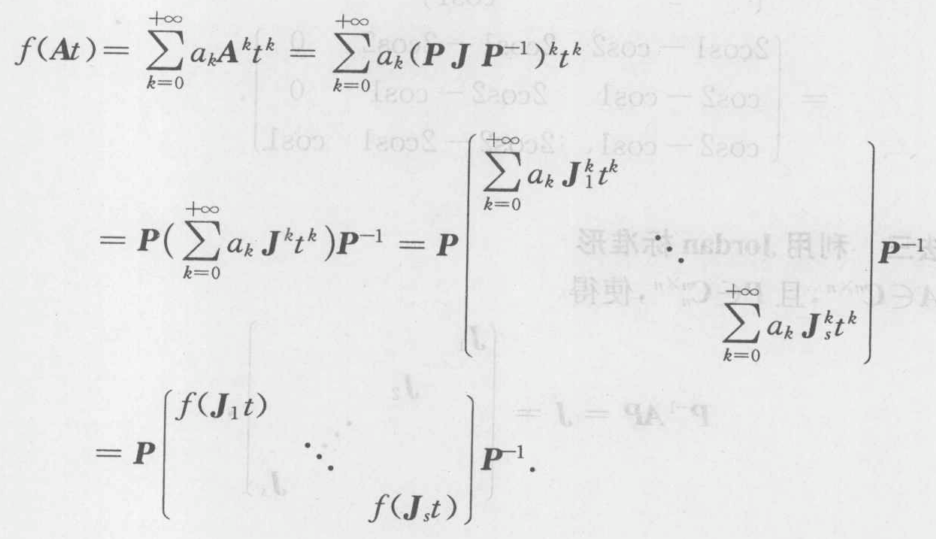 f(At) = \sum_{k=0}^{+\infty} a_k A^k t^k = \sum_{k=0}^{+\infty} a_k (P J P^{-1})^k t^k
= P(\sum_{k=0}^{+\infty} a_k J^k t^k)P^{-1} = P \begin{bmatrix} \sum_{k=0}^{+\infty} a_k J_1^k t^k & & \\ & \ddots & \\ & & \sum_{k=0}^{+\infty} a_k J_s^k t^k \end{bmatrix} P^{-1}
= P \begin{bmatrix} f(J_1 t) & & \\ & \ddots & \\ & & f(J_s t) \end{bmatrix} P^{-1}.